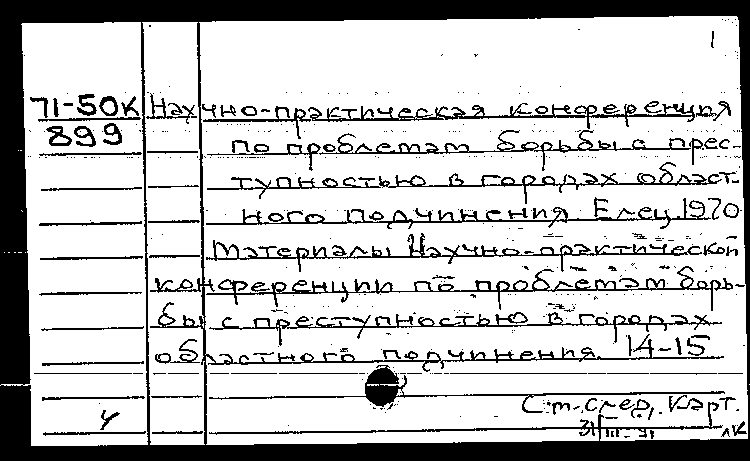 1
71-50к Научно-практическая конференция
899 по проблемам борьбы с прес-
тупностью в городах област-
ного подчинения. Елец. 1970
Материалы Научно-практической
конференции по проблемам борь-
бы с преступностью в городах
областного подчинения. 14-15
См. след. карт.
31/III-71